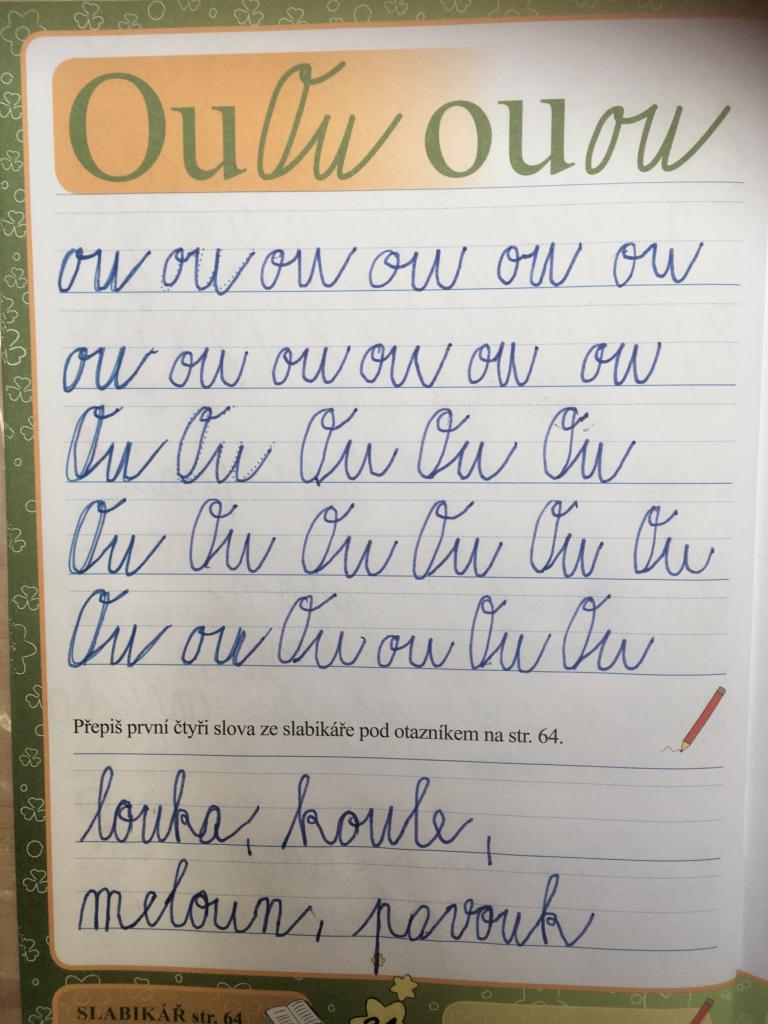 Ou Ou ou ou
ou ou ou ou ou ou
ou ou ou ou ou ou
Ou Ou Ou Ou Ou
Ou Ou Ou Ou Ou Ou
Ou ou Ou ou Ou Ou
Přepiš první čtyři slova ze slabikáře pod otazníkem na str. 64.
louka, koule,
meloun, pavouk
SLABIKÁŘ str. 64